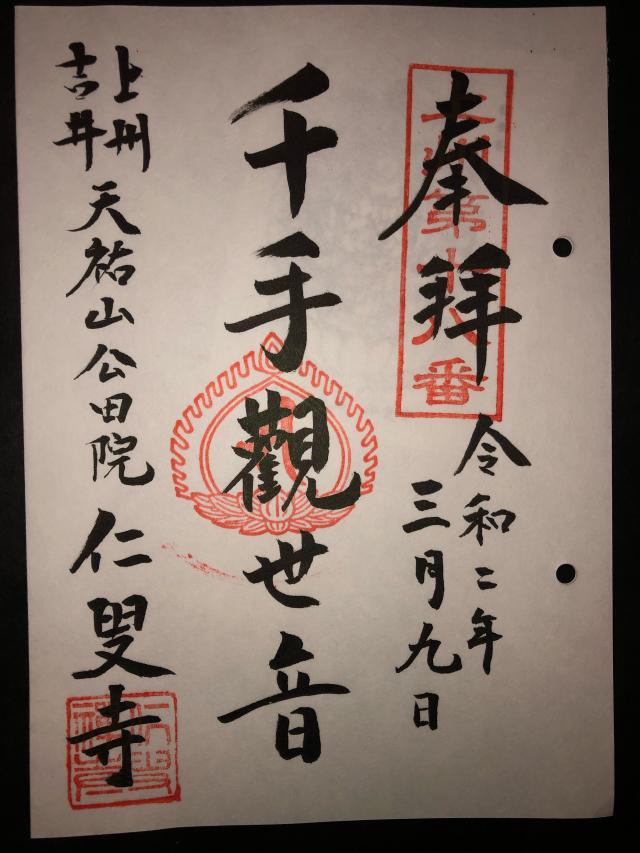 奉拝
令和二年
三月九日
千手觀世音
上州
吉井
天祐山公田院
仁叟寺
番